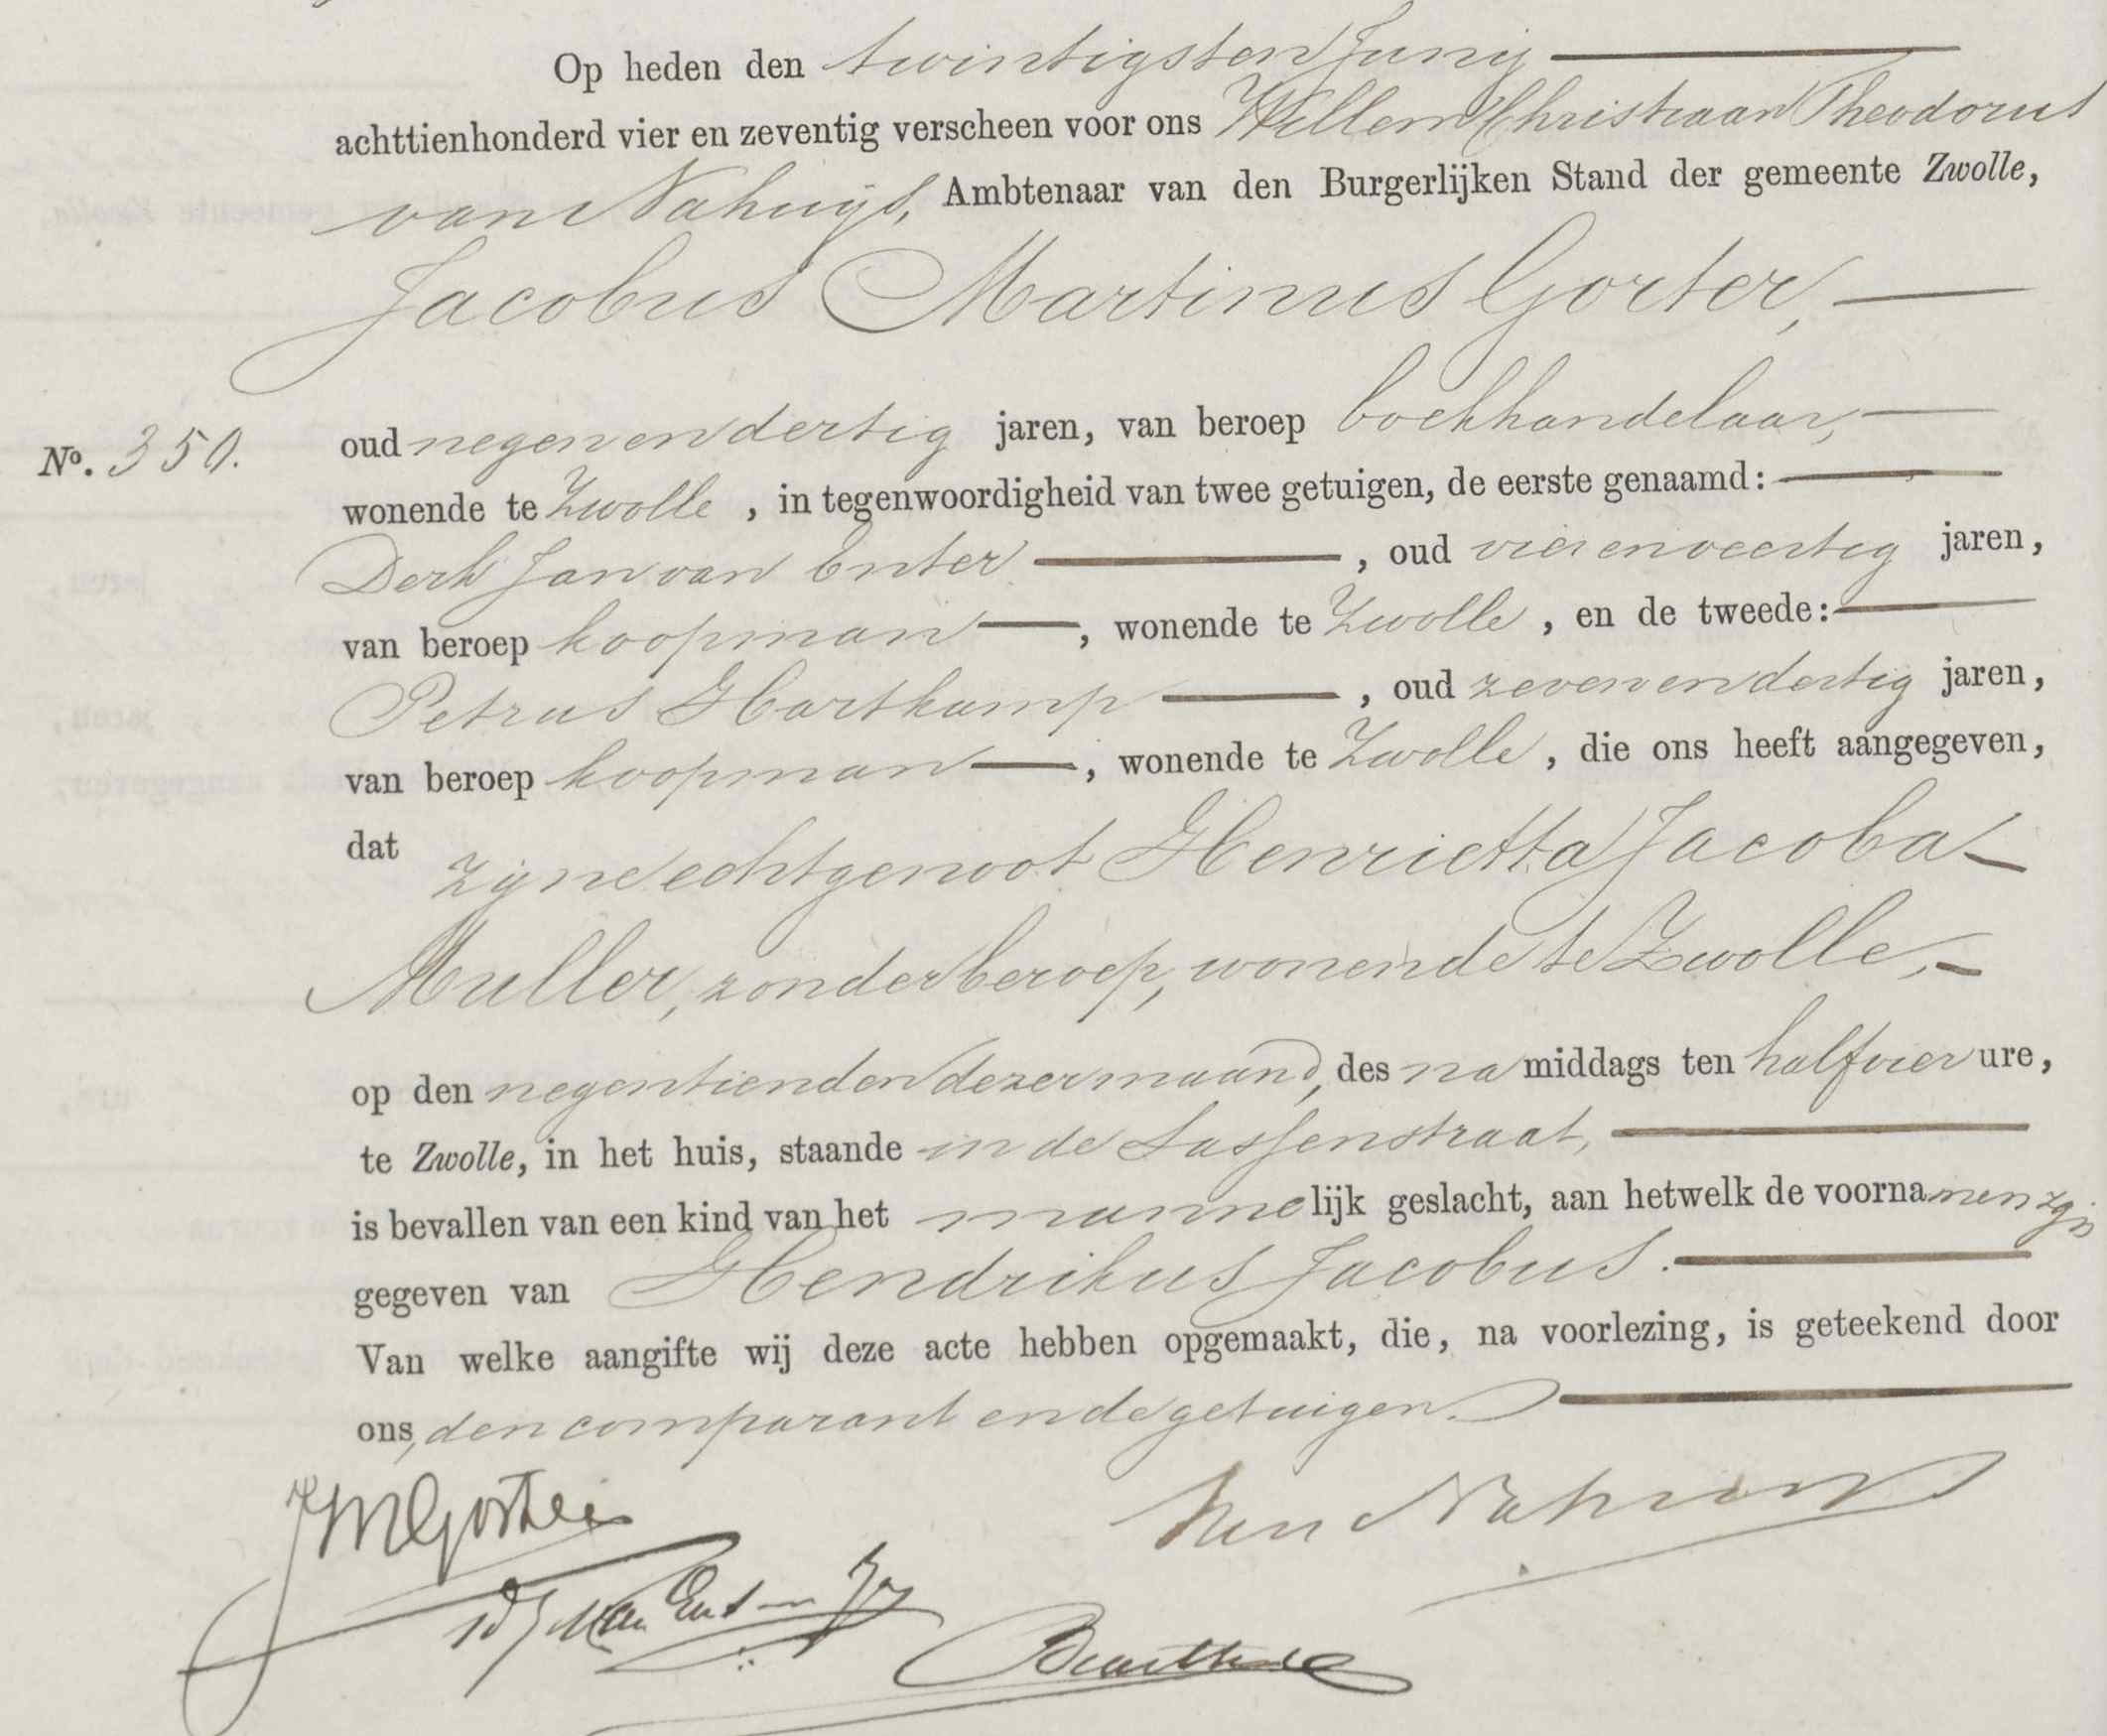 Op heden den twintigsten Junij
achttienhonderd vier en zeventig verscheen voor ons Willem Christiaan Theodorus
van Nahuijs, Ambtenaar van den Burgerlijken Stand der gemeente Zwolle,
Jacobus Martinus Gorter,
No. 350. oud negenendertig jaren, van beroep boekhandelaar,
wonende te Zwolle, in tegenwoordigheid van twee getuigen, de eerste genaamd:
Derk Jan van Enter, oud vierenveertig jaren,
van beroep koopman, wonende te Zwolle, en de tweede:
Petrus Hartkamp, oud zevenendertig jaren,
van beroep koopman, wonende te Zwolle, die ons heeft aangegeven,
dat zijne echtgenoot Henrietta Jacoba
Muller, zonder beroep, wonende te Zwolle,
op den negentienden dezer maand, des namiddags ten half vier ure,
te Zwolle, in het huis, staande in de Sassenstraat,
is bevallen van een kind van het mannelijk geslacht, aan hetwelk de voornamen zijn
gegeven van Hendrikus Jacobus.
Van welke aangifte wij deze acte hebben opgemaakt, die, na voorlezing, is geteekend door
ons, den comparant en de getuigen.
JMGorter
Van Nahuijs
DJ Van Enter